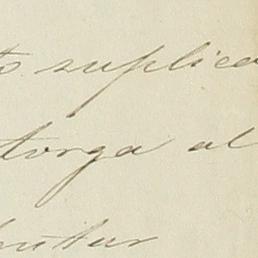 to suplica
torga al
butur